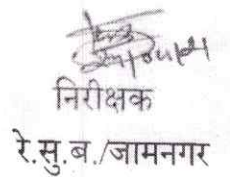 निरीक्षक
रे.सु.ब./जामनगर